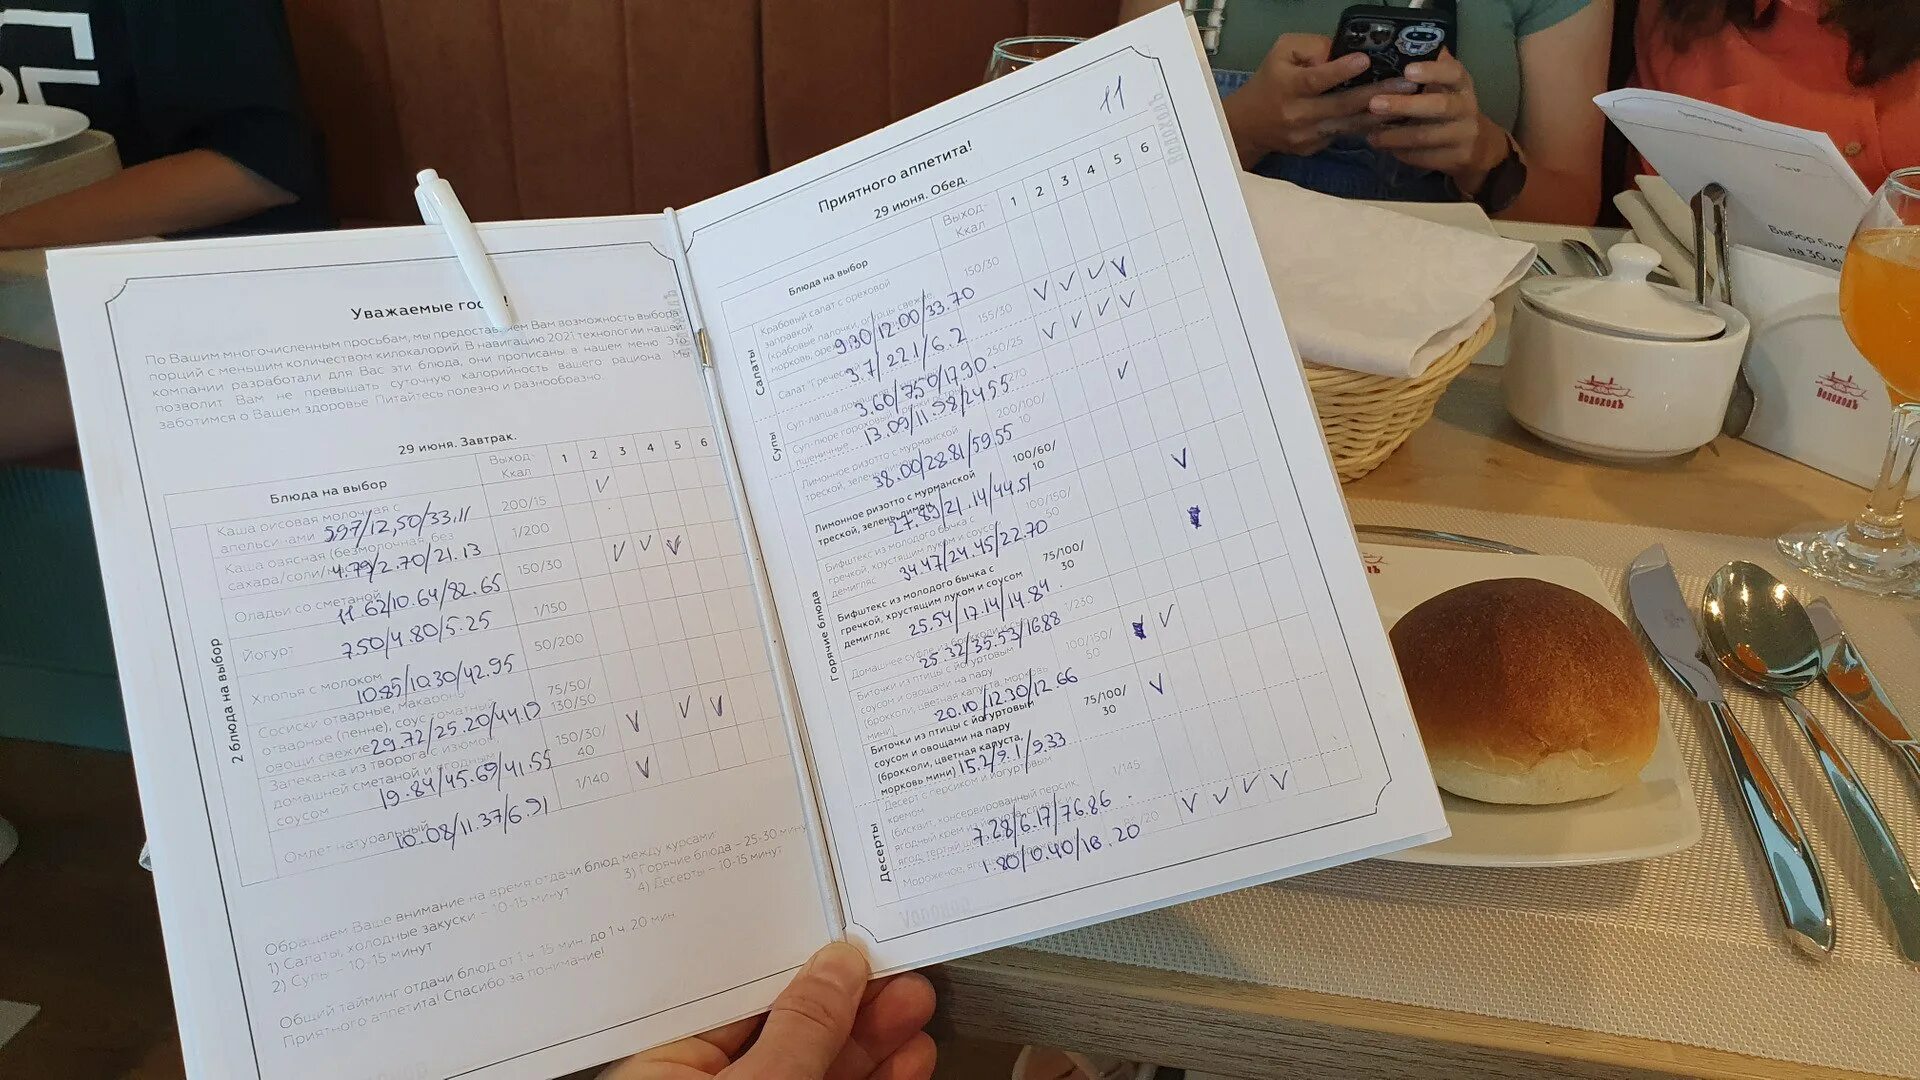 Уважаемые гос !
По Вашим многочисленным просьбам, мы предоставляем Вам возможность выбора
порций с меньшим количеством килокалорий. В навигацию 2021 технологии нашей
компании разработали для Вас эти блюда, они прописаны в нашем меню. Это
позволит Вам не превышать суточную калорийность вашего рациона. Мы
заботимся о Вашем здоровье. Питайтесь полезно и разнообразно.
29 июня. Завтрак.
Блюда на выбор
Выход-
Ккал
1 2 3 4 5 6
2 блюда на выбор
Каша рисовая молочная с
апельсинами 5.97/12,50/33.11
200/15
V
Каша овсяная (безмолочная, без
сахара/соли/ 4.79/2.70/21.13
1/200
Оладьи со сметаной
11.62/10.64/82.65
150/30
V V V
Йогурт 7.50/4.80/5.25
1/150
Хлопья с молоком
10.85/10.30/42.95
50/200
Сосиски отварные, макароны
отварные (пенне), соус томатный,
овощи свежие 29.72/25.20/44.19
75/50/
130/50
V V V
Запеканка из творога с изюмом,
домашней сметаной и ягодным
соусом 19.84/45.69/41.55
150/30/
40
V
Омлет натуральный
10.08/11.37/6.91
1/140
Обращаем Ваше внимание на время отдачи блюд между курсами
1) Салаты, холодные закуски – 10-15 минут
2) Супы – 10-15 минут
3) Горячие блюда – 25-30 минут
4) Десерты – 10-15 минут
Общий тайминг отдачи блюд от 1 ч. 15 мин. до 1 ч. 20 мин
Приятного аппетита! Спасибо за понимание!
11
Водоходъ
Приятного аппетита!
29 июня. Обед.
Блюда на выбор
Выход-
Ккал
1 2 3 4 5 6
Салаты
Крабовый салат с ореховой
заправкой
(крабовые палочки, огурцы свежие,
морковь, 9.30/12.00/33.70
150/30
V V V V
Салат "Гречес
3.7/22.1/6.2
155/30
V V V V
Супы
Суп-лапша дом
3.60/7.50/17.90.
250/25
Суп-пюре гороховый
пшеничные 13.09/11.98/24.55
V
Горячие блюда
Лимонное ризотто с мурманской
треской, зелен 38.00/28.81/59.55
200/100/
10
Лимонное ризотто с мурманской
треской, зелень, лимон
27.89/21.14/44.51
100/60/
10
V
Бифштекс из молодого бычка с
гречкой, хрустящим луком и соусом
демигляс 34.47/24.45/22.70
100/150/
50
Бифштекс из молодого бычка с
гречкой, хрустящим луком и соусом
демигляс 25.54/17.14/14.84
75/100/
30
Домашнее суфле
25.32/35.53/16.88
1/250
V
Биточки из птицы с йогуртовым
соусом и овощами на пару
(брокколи, цветная капуста, морковь
мини) 20.10/12.30/12.66
100/150/
50
Биточки из птицы с йогуртовым
соусом и овощами на пару
(брокколи, цветная капуста,
морковь мини) 15.2/9.1/9.33
75/100/
30
V
Десерты
Десерт с персиком и йогуртовым
кремом
(бисквит, консервированный персик,
7.28/6.17/76.86
1/145
V V V V
Мороженое,
1.80/0.40/18.20
Водоходъ
Выбор блю
на 30 ию
Водоходъ
Водоходъ